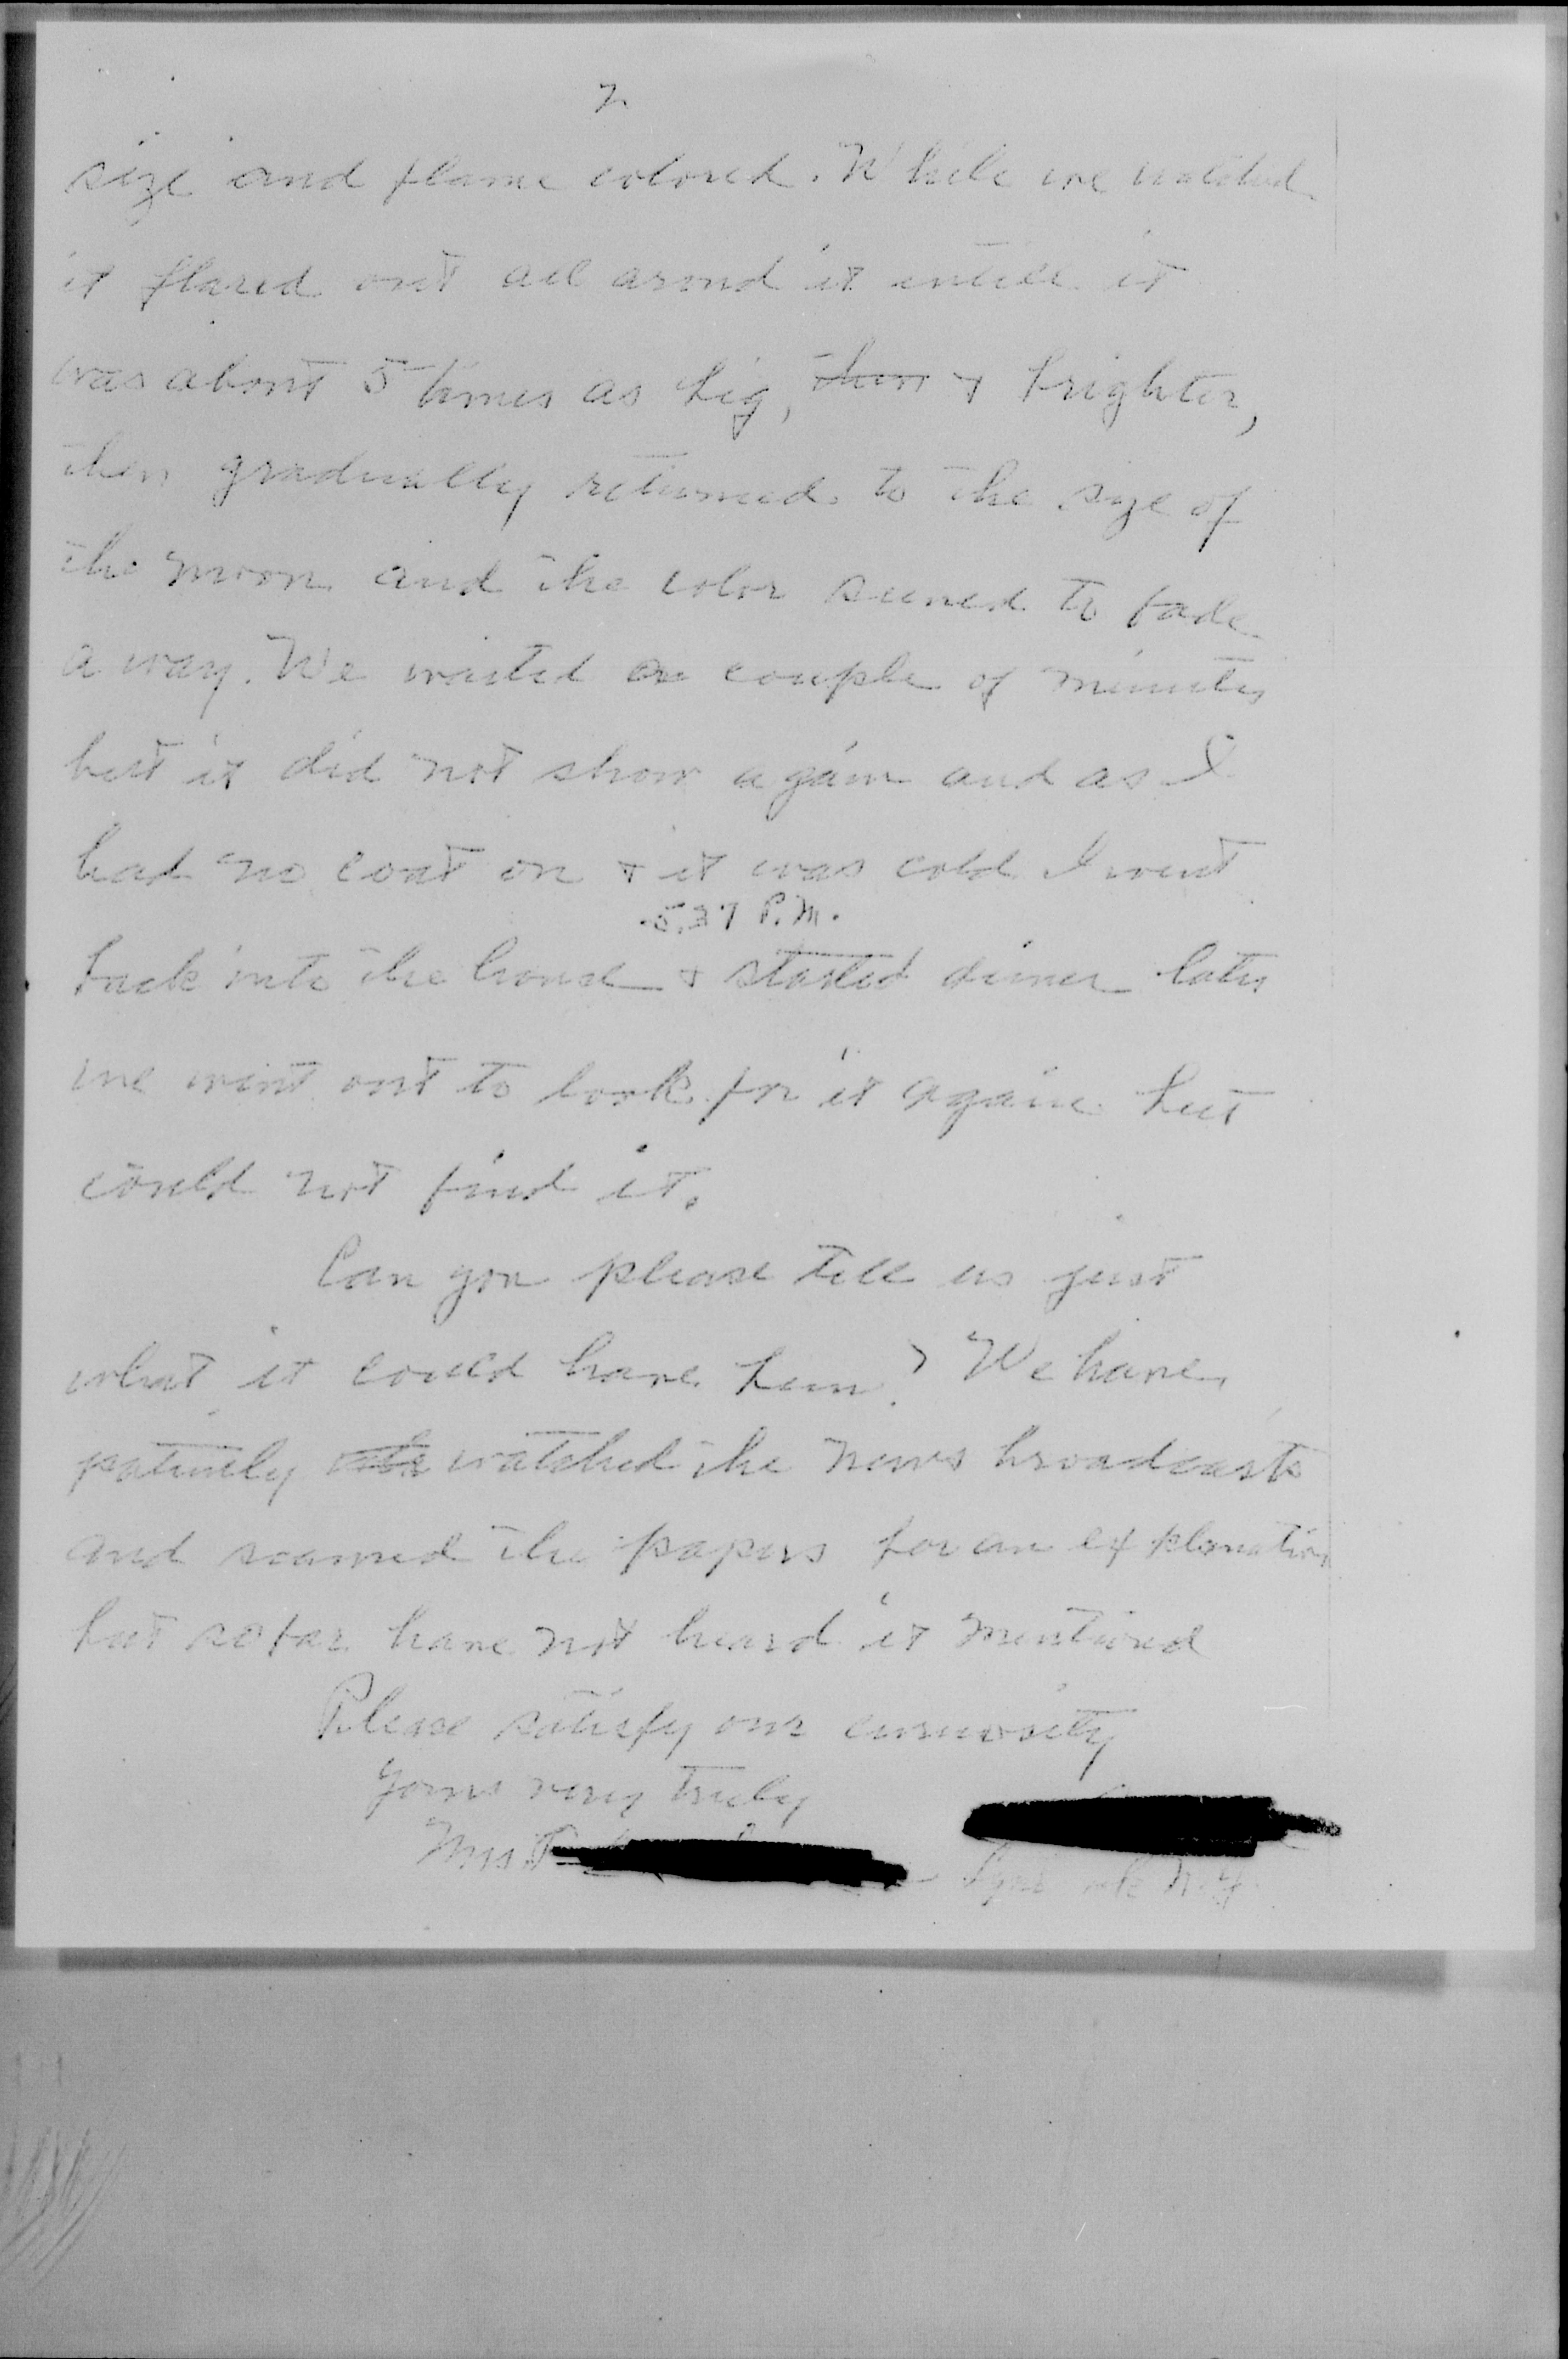 2
size and flame colored. While we watched
it flared out all arond it untill it
was about 5 times as big, then & brighter,
then gradually returned to the size of
the moon and the color seemed to fade
a way. We waited a couple of minutes
but it did not show again and as I
had no coat on & it was cold I went
5.37 P.M.
back into the house & started dinner later
we went out to look for it again but
could not find it.
Can you please tell us just
what it could have been? We have
patiently watched the news broadcasts
and scanned the papers for an explanation
but so far have not heard it mentioned
Please satisfy our curiosity
Yours very truly
Mrs
N.Y.